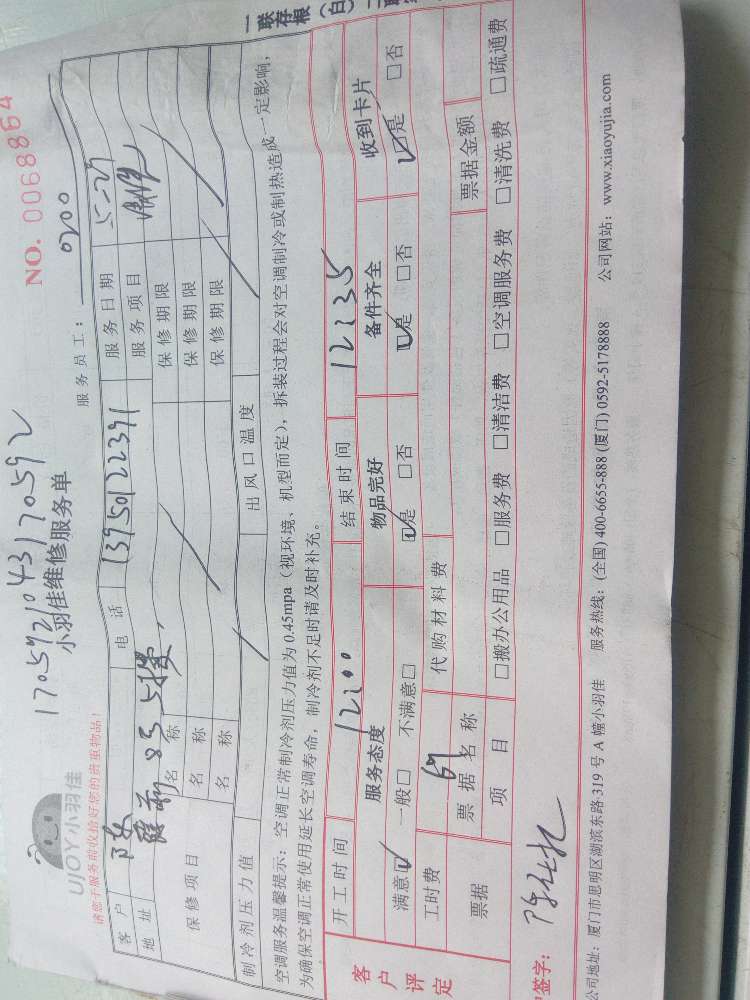 17059210431 70592
NO. 0068864
UJOY小羽佳
小羽佳维修服务单
请您于服务前收拾好您的贵重物品！
服务员工： 0200
客户 陈 电话 13950122391 服务日期 5-27
地址 83 5楼 服务项目
保修项目 名称 保修期限
名称 保修期限
名称 保修期限
制冷剂压力值 出风口温度
空调服务温馨提示：空调正常制冷剂压力值为 0.45mpa（视环境、机型而定），拆装过程会对空调制冷或制热造成一定影响，
为确保空调正常使用延长空调寿命，制冷剂不足时请及时补充。
客户评定
开工时间 12:00 结束时间 12:35
服务态度 物品完好 备件齐全 收到卡片
满意☑ 一般□ 不满意□ ☑是 □否 ☑是 □否 ☑是 □否
工时费 69 代购材料费
票据 票据名称 票据金额
项目 □搬办公用品 □服务费 □清洁费 □清洗费 □空调服务费 □疏通费
签字：
公司地址：厦门市思明区湖滨东路 319 号 A 幢小羽佳 服务热线：(全国) 400-6655-888 (厦门) 0592-5178888 公司网站：www.xiaoyujia.com
一联存根（白）二联